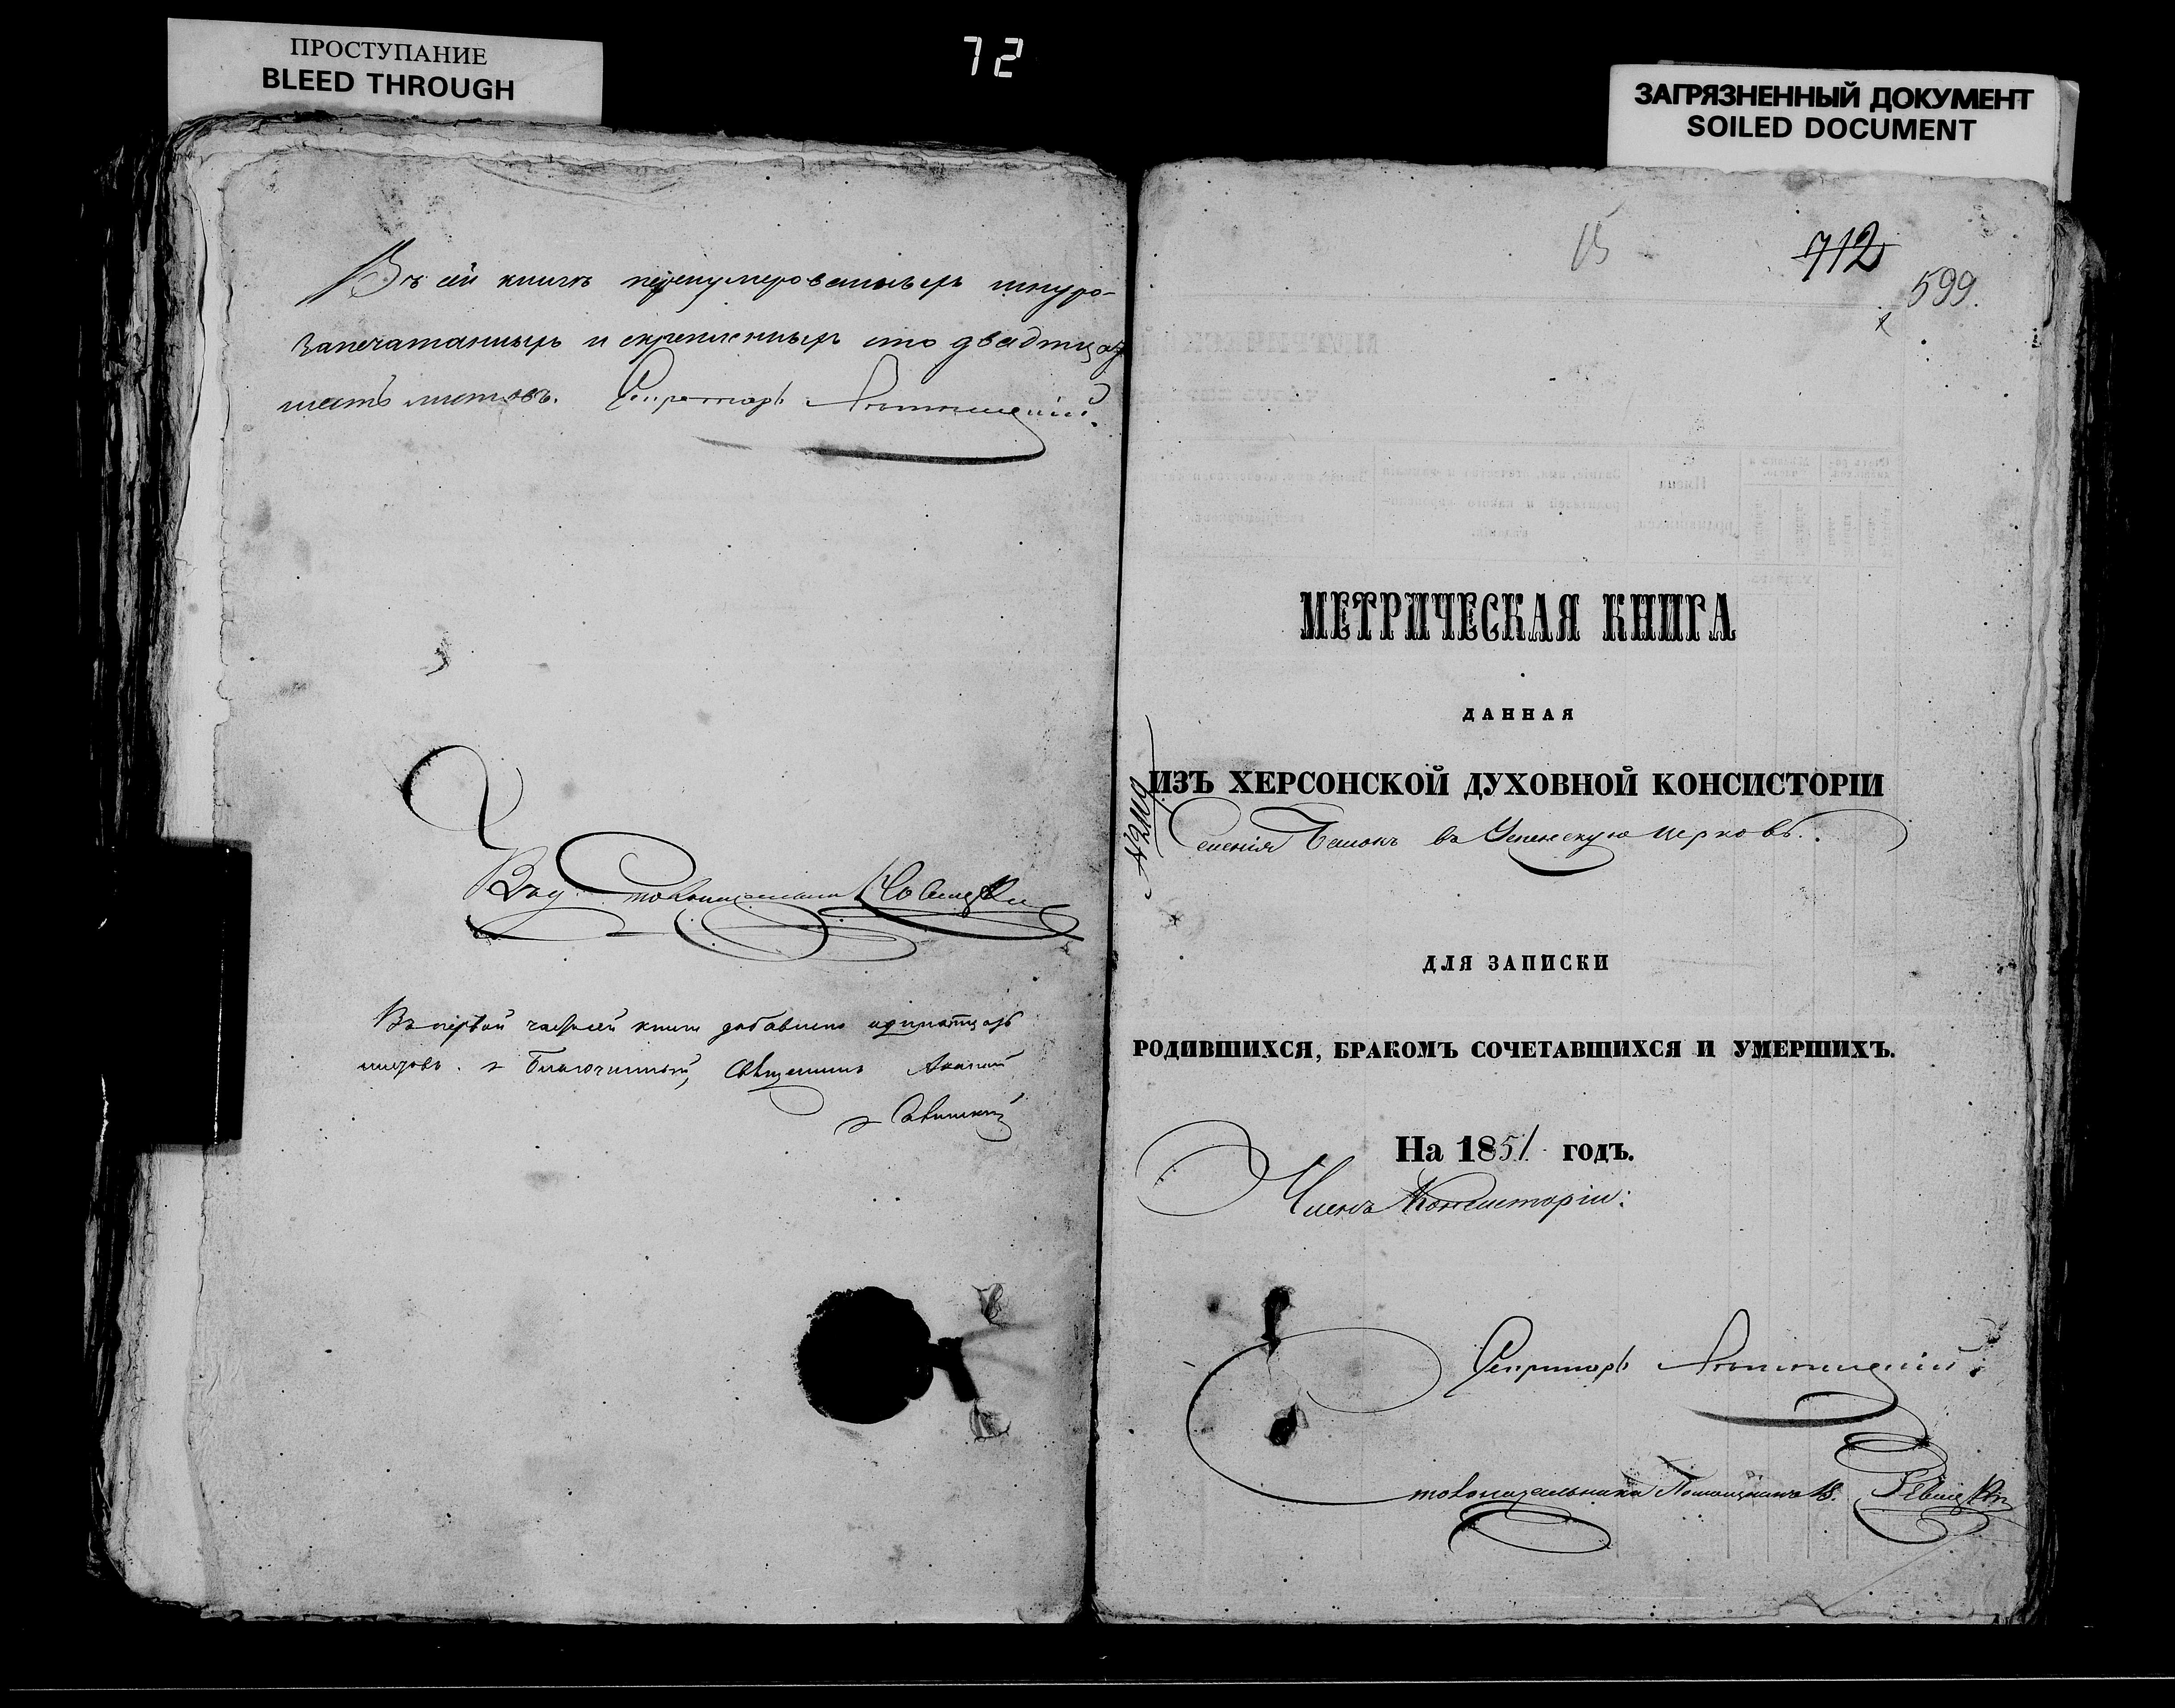 ПРОСТУПАНИЕ
BLEED THROUGH
72
ЗАГРЯЗНЕННЫЙ ДОКУМЕНТ
SOILED DOCUMENT
Въ сей книгѣ перенумерованныхъ шнуро-
запечатанныхъ и скрепленныхъ сто двадцать
шесть листовъ. Секретарь
Въ первой части сей книги добавлено одинатцать
листовъ. Благочинный, Священникъ
15
712
599.
МЕТРИЧЕСКАЯ КНИГА
ДАННАЯ
ИЗЪ ХЕРСОНСКОЙ ДУХОВНОЙ КОНСИСТОРІИ
селенія Бѣлокъ въ Успенскую церковь.
ДЛЯ ЗАПИСКИ
РОДИВШИХСЯ, БРАКОМЪ СОЧЕТАВШИХСЯ И УМЕРШИХЪ.
На 1851 годъ.
Членъ Консисторіи:
Секретарь
Столоначальника Помощникъ